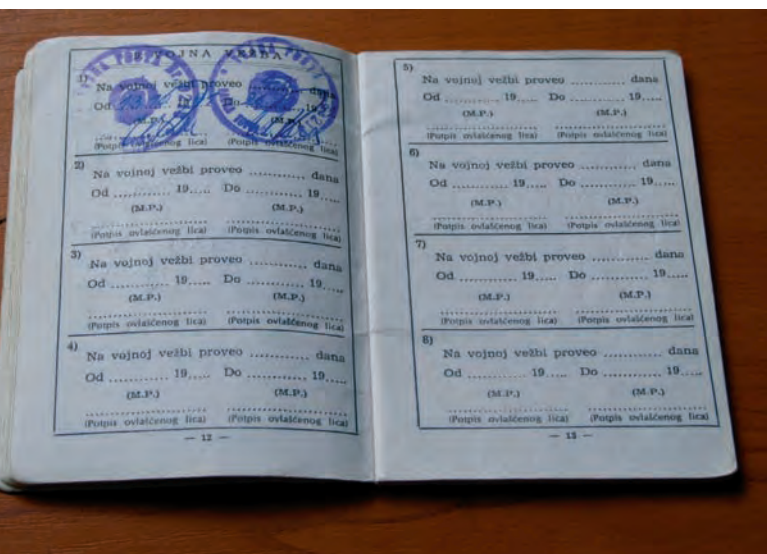 VOJNA VEŽBA
1)
Na vojnoj vežbi proveo ............ dana
Od 19 Do 19
(M.P.) (M.P.)
(Potpis ovlašćenog lica) (Potpis ovlašćenog lica)
2)
Na vojnoj vežbi proveo ............ dana
Od ............ 19..... Do ............ 19.....
(M.P.) (M.P.)
(Potpis ovlašćenog lica) (Potpis ovlašćenog lica)
3)
Na vojnoj vežbi proveo ............ dana
Od ............ 19..... Do ............ 19.....
(M.P.) (M.P.)
(Potpis ovlašćenog lica) (Potpis ovlašćenog lica)
4)
Na vojnoj vežbi proveo ............ dana
Od ............ 19..... Do ............ 19.....
(M.P.) (M.P.)
(Potpis ovlašćenog lica) (Potpis ovlašćenog lica)
— 12 —
5)
Na vojnoj vežbi proveo ............ dana
Od ............ 19..... Do ............ 19.....
(M.P.) (M.P.)
(Potpis ovlašćenog lica) (Potpis ovlašćenog lica)
6)
Na vojnoj vežbi proveo ............ dana
Od ............ 19..... Do ............ 19.....
(M.P.) (M.P.)
(Potpis ovlašćenog lica) (Potpis ovlašćenog lica)
7)
Na vojnoj vežbi proveo ............ dana
Od ............ 19..... Do ............ 19.....
(M.P.) (M.P.)
(Potpis ovlašćenog lica) (Potpis ovlašćenog lica)
8)
Na vojnoj vežbi proveo ............ dana
Od ............ 19..... Do ............ 19.....
(M.P.) (M.P.)
(Potpis ovlašćenog lica) (Potpis ovlašćenog lica)
— 13 —